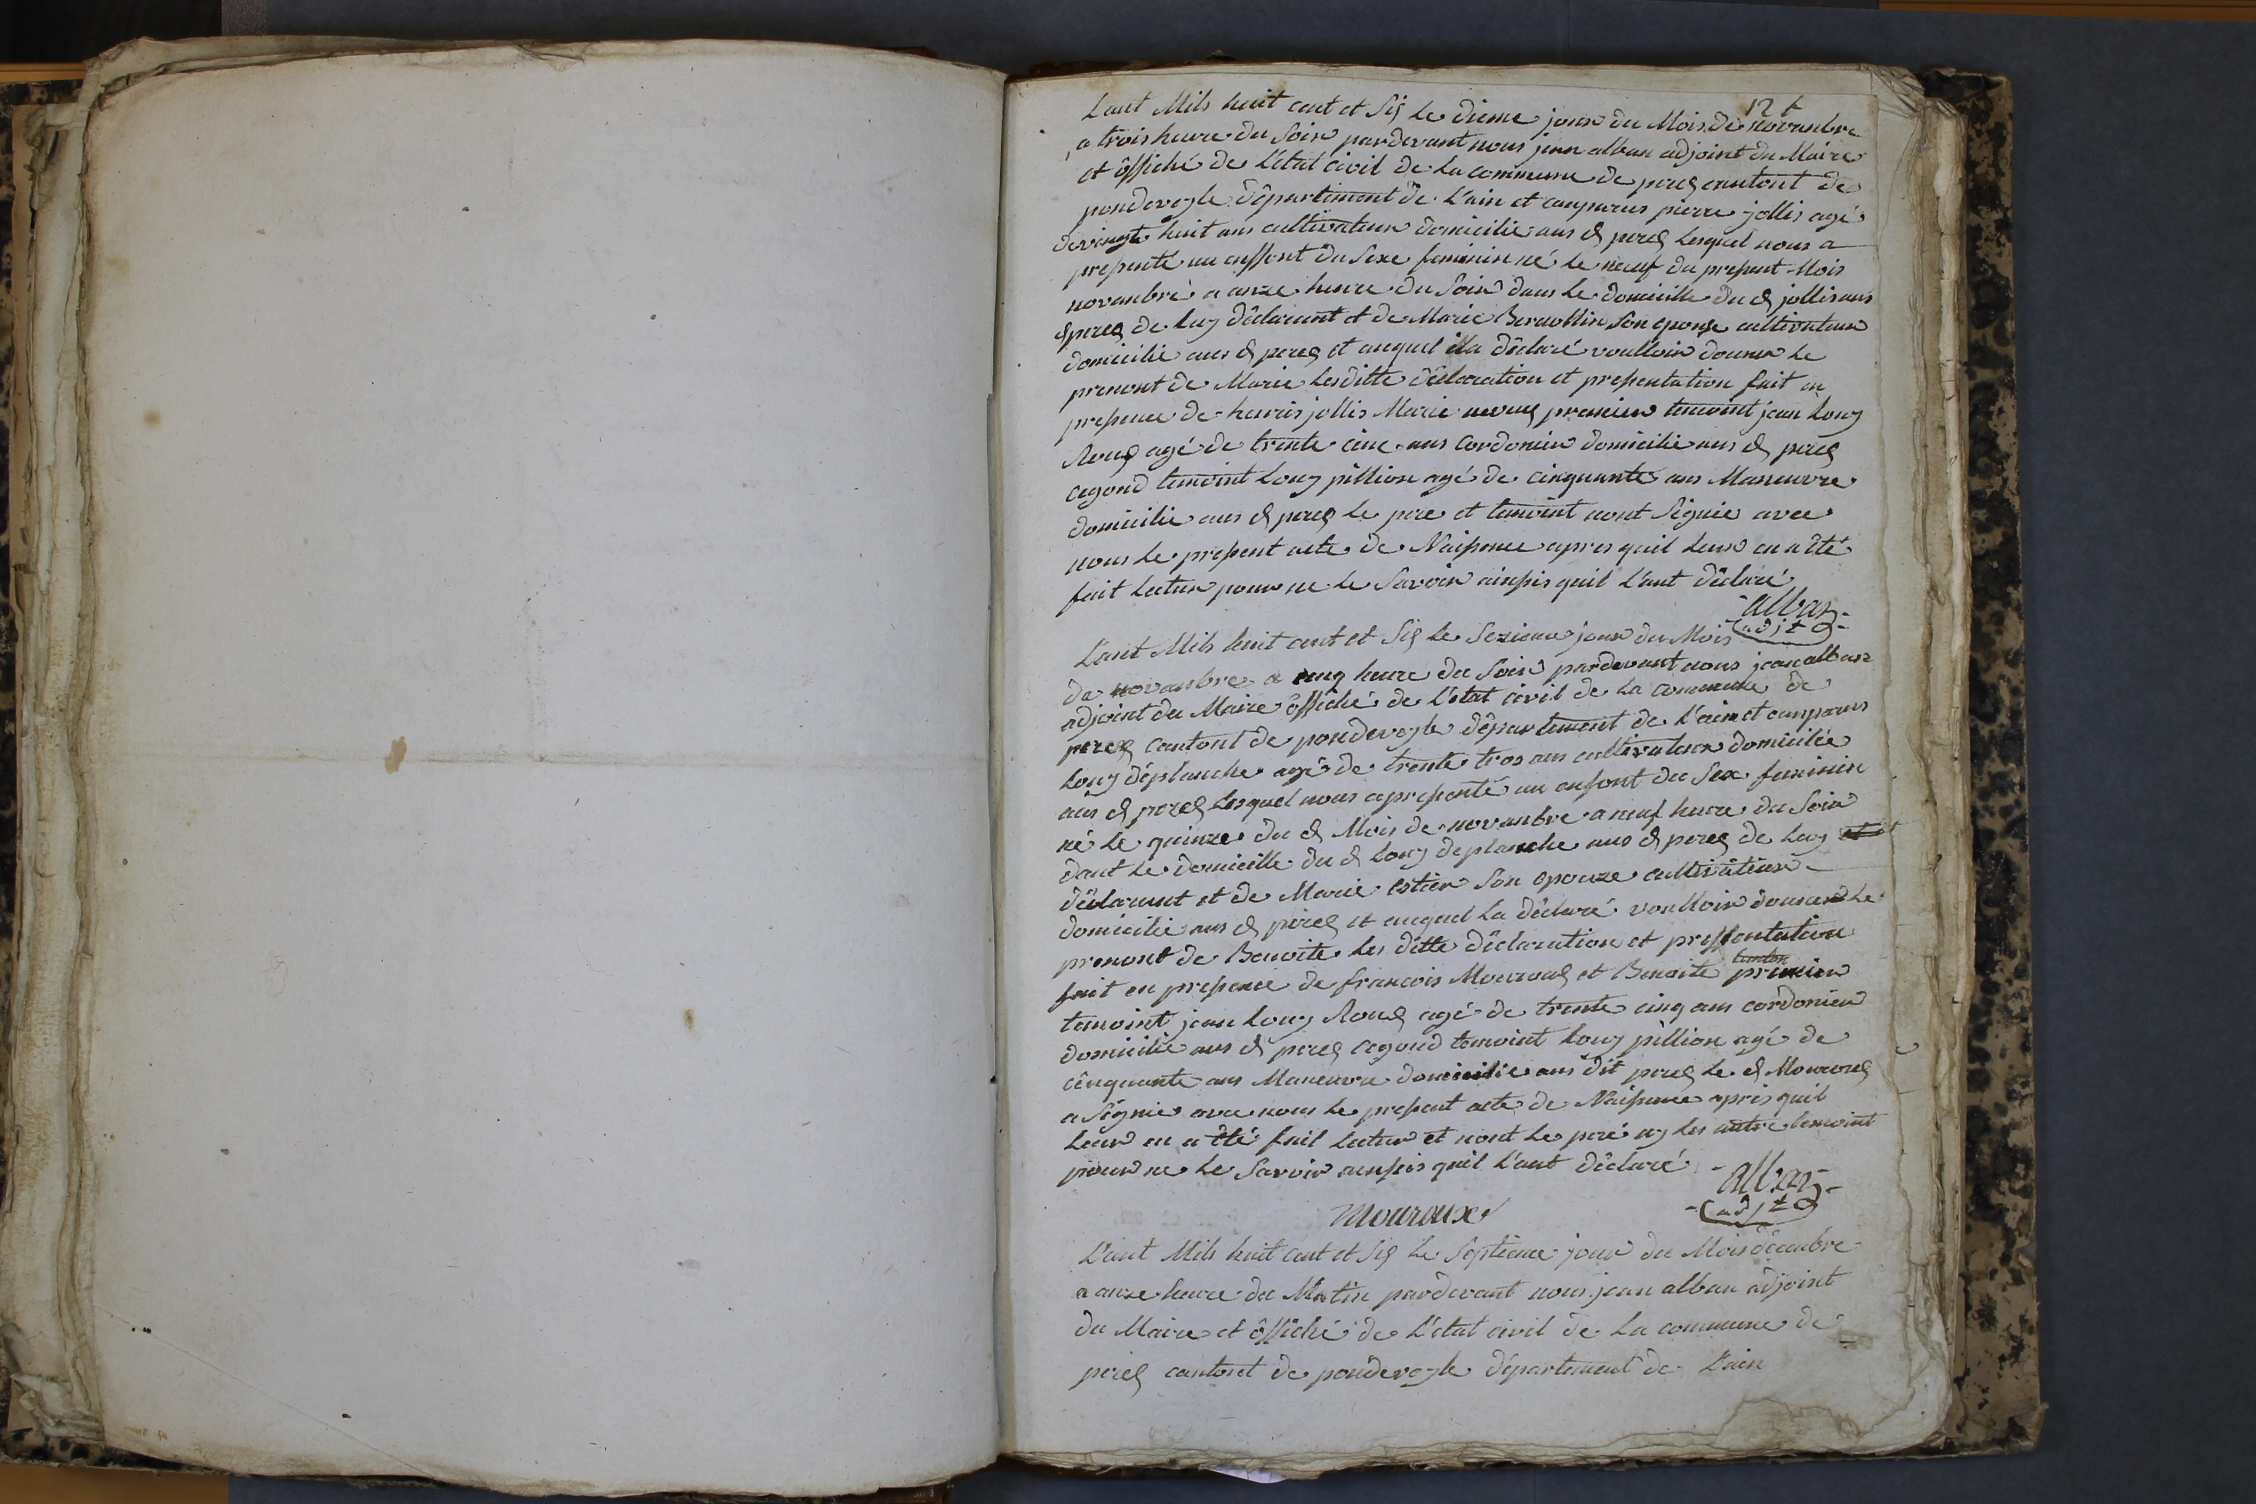 12 t
Lant Mils huit cent et Sis Le dieme jour du Mois de novanbre
a trois heure du Soir pardevant nous jean alban adjoint du Maire
et ôffiché de L'état Civil de La commune de peres cantont de
pondevegle département de L'ain et conparus pierre jollis agé
de vingte huit ans cultivateur domicilie aus d peres Lesquel nous a
presente un enffent du Sexe feminin né Le neuf du present Mois
novanbre a anze heure du Soir dans Le domicille du d jollis aus
d peres de Luy déclarant et de Marie Son epouse cultivateur
domicilie aus d peres et auquel ila déclaré voulloir donner Le
prenont de Marie Lesditte déclaration et presentation fait en
presence de jollis Marie premier temoint jean Louy
Rous agé de trente cinc ans Cordonier domicilie aus d peres
cegond temoint Louy pillion agé de cinquante ans Maneuvre
domicilie aus d peres Le pere et temoint nont Signie avec
nous Le present acte de Naisence apres quil Leur en a été
fait Lectur pour ne Le Savoir ainsis quil L'ant déclaré
- alban -
(adjt)
Lant Mils huit cent et Sis Le Sezieme jour du Mois
de novanbre a cinq heure du Soir pardevant nous jean alban
adjoint du Maire ôffiché de L'état civil de La commune de
peres cantont de pondevegle département de L'ain et conparus
Louy déplanche agé de trente tros ans cultivateur domicilée
aus d peres Lesquel nous apresenté un enfont du Sex feminin
né Le quinze du d Mois de novanbre a neuf heure du Soir
dant Le domicille du d Louy deplanche aus d peres de Luy et
déclarant et de Marie estier Son epouze cultivateur
domicilie aus d peres et auquel La déclaré voulloir donner Le
prenont de Benoite Les ditte déclaration et pressentation
fait en presence de francois Mourous et Benoite premier
temoint jean Louy Rous agé de trente cinq ans cordonier
domicilie aus d peres cegond temoint Louy pillion agé de
cinquante ans Maneuvre domicilie aus dit peres Le d Mourous
a Signie avec nous Le present acte de Naisence apris quil
Leur en a été fait Lectur et nont Le peré ny Les autre temoint
pour ne Le Savoir ainsis quil L'ant déclaré
- alban -
Mouroux
(adjt)
L'ant Mils huit cent et Sis Le Septieme jour du Mois decenbre
a anze heure du Matin pardevant nous jean alban adjoint
du Maire et ôffiché de L'état civil de La commune de
peres cantont de pondevegle département de L'ain